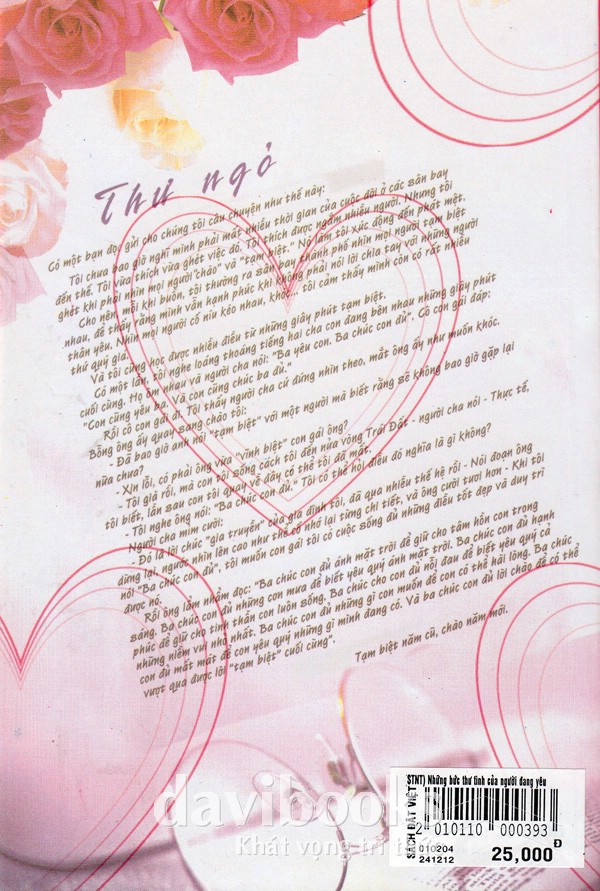 Thư ngỏ
Có một bạn đọc gửi cho chúng tôi câu chuyện như thế này:
Tôi chưa bao giờ nghĩ mình phải mất nhiều thời gian của cuộc đời ở các sân bay
đến thế. Tôi vừa thích vừa ghét việc đó. Tôi thích được ngắm nhiều người. Nhưng tôi
ghét khi phải nhìn mọi người "chào" và "tạm biệt". Nó làm tôi xúc động đến phát mệt.
Cho nên, mỗi khi buồn, tôi thường ra sân bay thành phố nhìn mọi người tạm biệt
nhau, để thấy rằng mình vẫn hạnh phúc khi không phải nói lời chia tay với những người
thân yêu. Nhìn mọi người cố níu kéo nhau, khóc... tôi cảm thấy mình còn có rất nhiều
thứ quý giá.
Và tôi cũng học được nhiều điều từ những giây phút tạm biệt.
Có một lần, tôi nghe loáng thoáng tiếng hai cha con đang bên nhau những giây phút
cuối cùng. Họ ôm nhau và người cha nói: "Ba yêu con. Ba chúc con đủ". Cô con gái đáp:
"Con cũng yêu ba. Và con cũng chúc ba đủ."
Rồi cô con gái đi. Tôi thấy người cha cứ đứng nhìn theo, mắt ông ấy như muốn khóc.
Bỗng ông ấy quay sang chào tôi:
- Đã bao giờ anh nói "tạm biệt" với một người mà biết rằng sẽ không bao giờ gặp lại
nữa chưa?
- Xin lỗi, có phải ông vừa "vĩnh biệt" con gái ông?
- Tôi già rồi, mà con tôi sống cách tôi đến nửa vòng Trái Đất - người cha nói - Thực tế,
tôi biết, lần sau con tôi quay về đây có thể tôi đã mất.
- Tôi nghe ông nói: "Ba chúc con đủ." Tôi có thể hỏi điều đó nghĩa là gì không?
Người cha mỉm cười:
- Đó là lời chúc "gia truyền" của gia đình tôi, đã qua nhiều thế hệ rồi - Nói đoạn ông
dừng lại, ngước nhìn lên cao như thể cố nhớ lại từng chi tiết, và ông cười tươi hơn - Khi tôi
nói "Ba chúc con đủ", tôi muốn con gái tôi có cuộc sống đủ những điều tốt đẹp và duy trì
được nó.
Rồi ông lẩm nhẩm đọc: "Ba chúc con đủ ánh mặt trời để giữ cho tâm hồn con trong
sáng. Ba chúc con đủ những cơn mưa để biết yêu quý ánh mặt trời. Ba chúc con đủ hạnh
phúc để giữ cho tinh thần con luôn sống. Ba chúc cho con đủ nỗi đau để biết yêu quý cả
những niềm vui nhỏ nhất. Ba chúc con đủ những gì con muốn để con có thể hài lòng. Ba chúc
con đủ mất mát để con yêu quý những gì mình đang có. Và ba chúc con đủ lời chào để có thể
vượt qua được lời "tạm biệt" cuối cùng".
Tạm biệt năm cũ, chào năm mới.
davibooks
Khát vọng tri
SÁCH ĐẤT VIỆT
STNT) Những bức thư tình của người đang yêu
2 010110 000393
010204
241212
25,000Đ